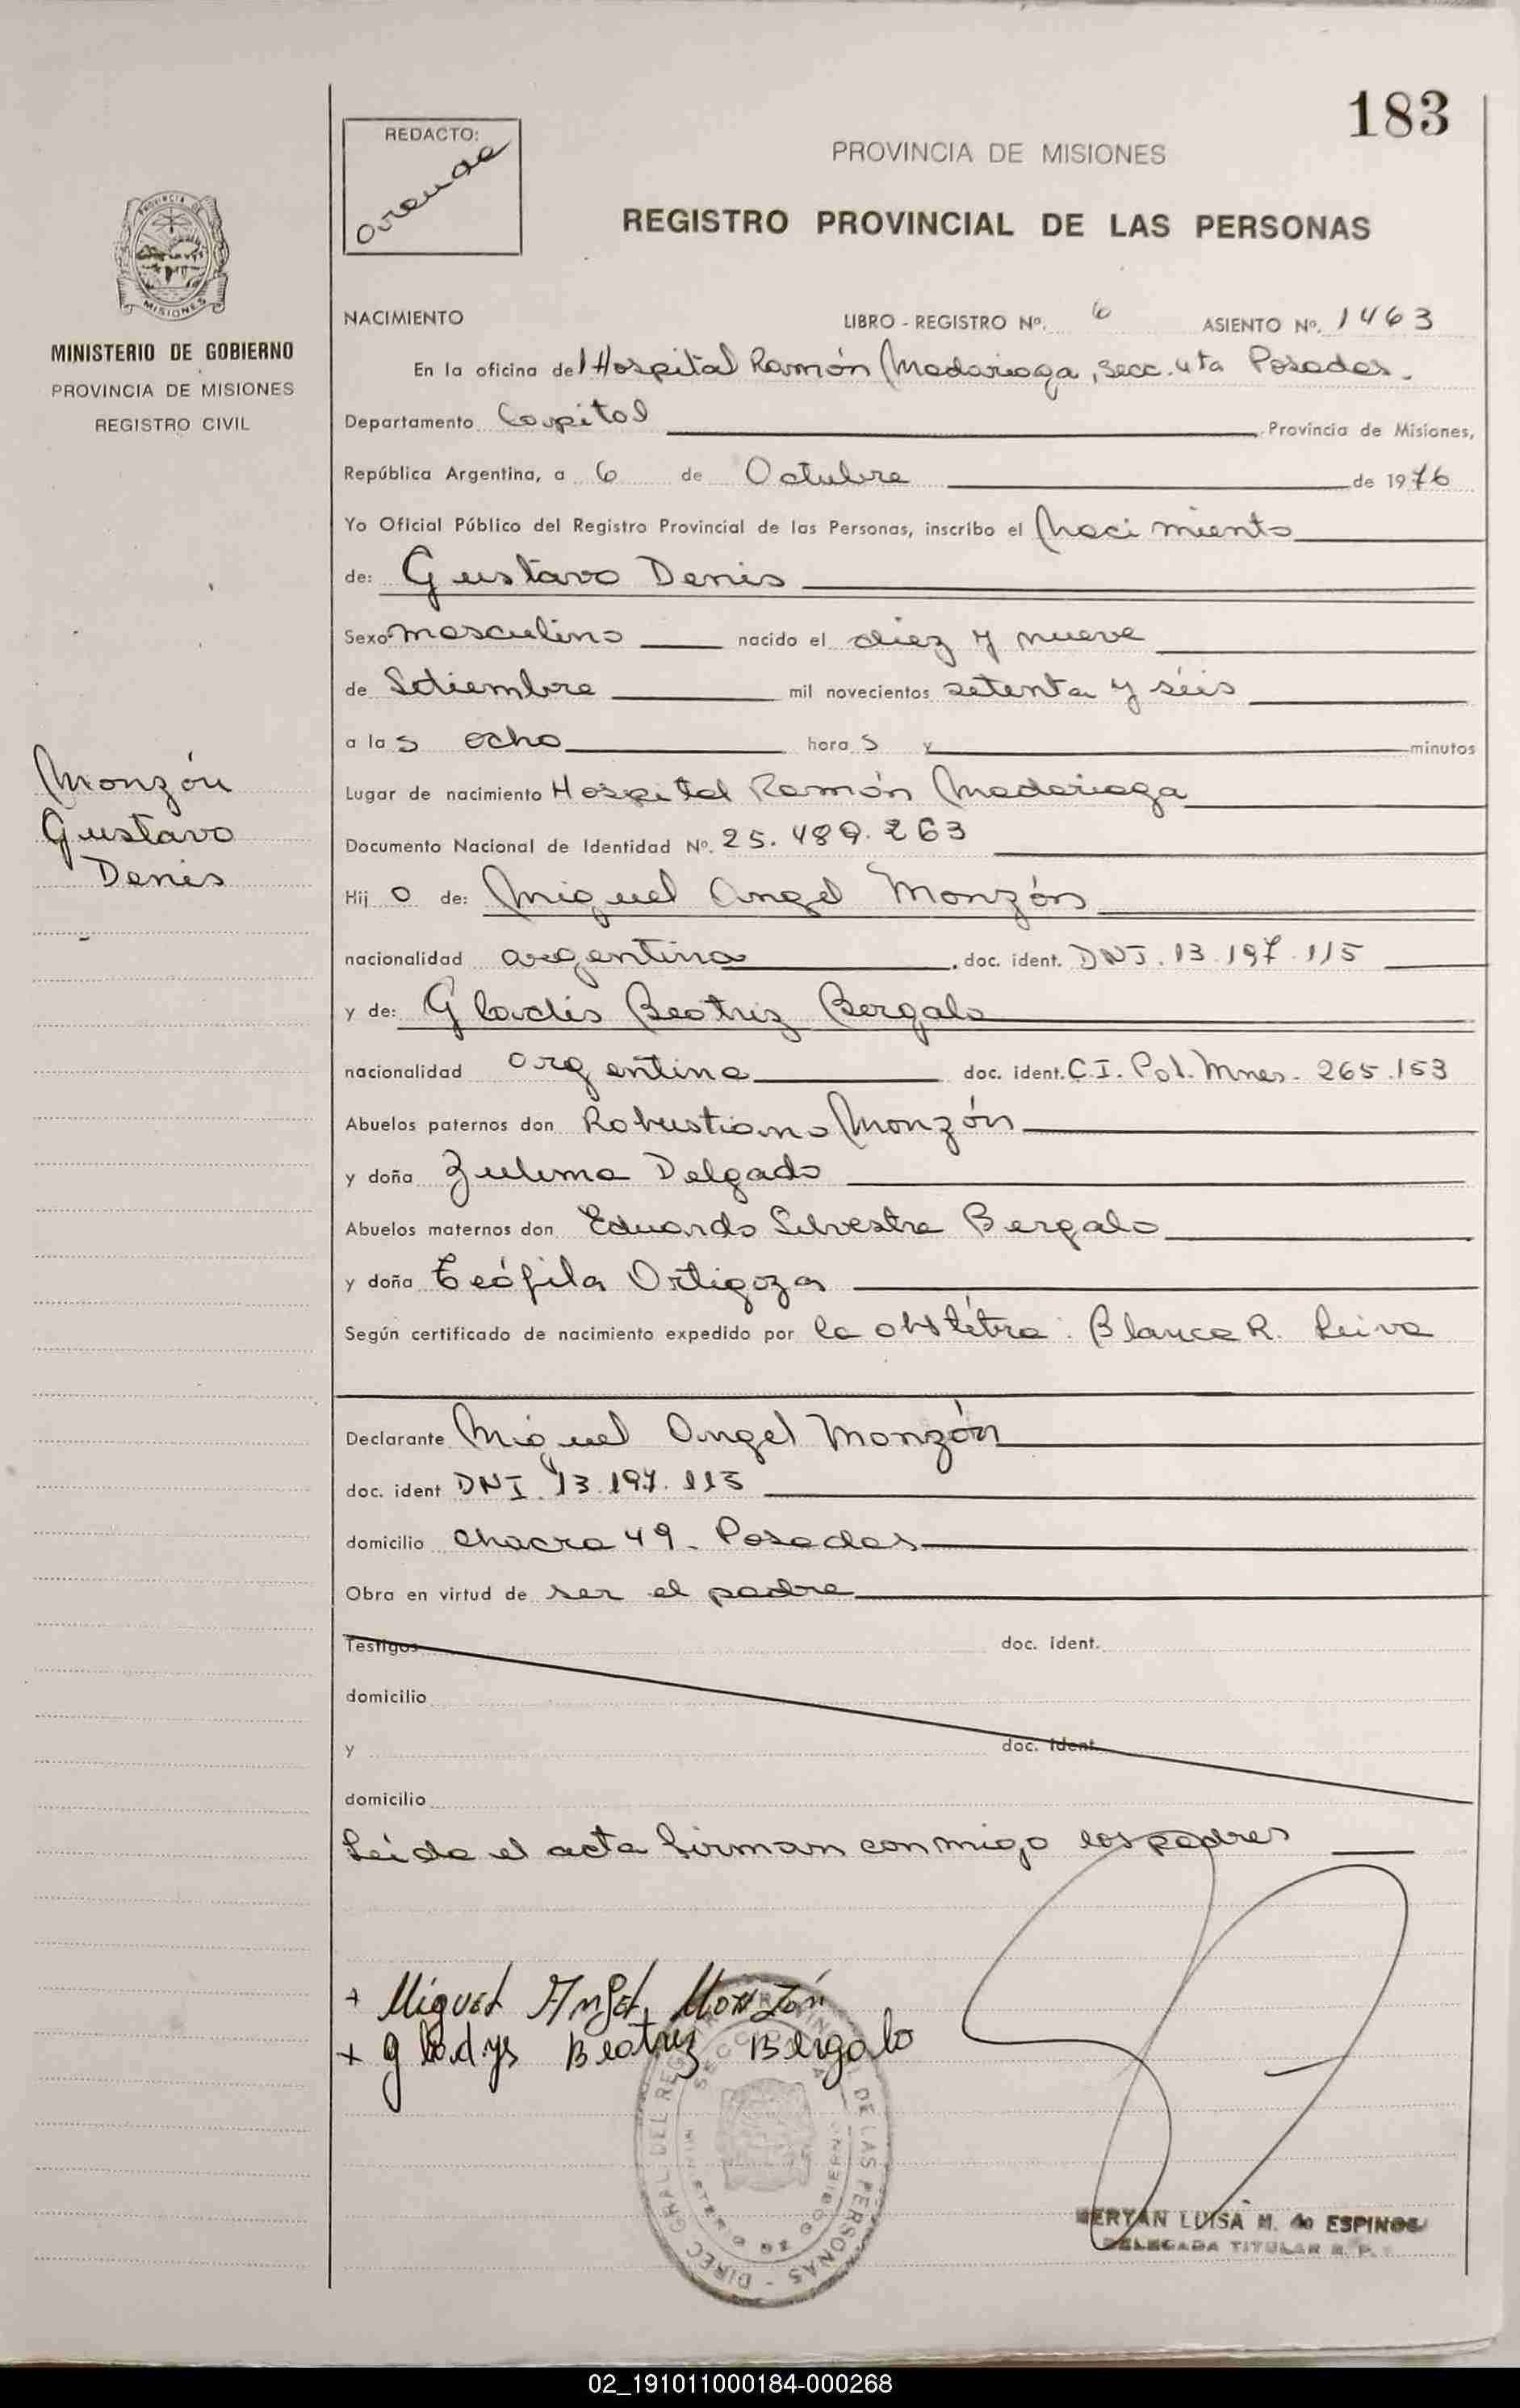 183
REDACTO:
PROVINCIA DE MISIONES
REGISTRO PROVINCIAL DE LAS PERSONAS
PROVINCIA DE
MISIONES
MINISTERIO DE GOBIERNO
PROVINCIA DE MISIONES
REGISTRO CIVIL
NACIMIENTO LIBRO - REGISTRO Nº. 6 ASIENTO Nº. 1463
En la oficina del Hospital Ramón Madariaga, secc. 4ta Posadas.
Departamento Capital Provincia de Misiones,
República Argentina, a 6 de Octubre de 1976
Yo Oficial Público del Registro Provincial de las Personas, inscribo el Nacimiento
de: Gustavo Denis
Sexo masculino nacido el diez y nueve
de Setiembre mil novecientos setenta y séis
a las ocho horas y minutos
Monzón
Gustavo
Denis
Lugar de nacimiento Hospital Ramón Madariaga
Documento Nacional de Identidad Nº. 25.489.263
Hijo de: Miguel Angel Monzón
nacionalidad argentina doc. ident. DNI. 13.197.115
y de: Gladis Beatriz Bergalo
nacionalidad argentina doc. ident. C.I. Pol. Mnes. 265.153
Abuelos paternos don Robustiano Monzón
y doña Zulema Delgado
Abuelos maternos don Eduardo Silvestre Bergalo
y doña Teófila Ortigoza
Según certificado de nacimiento expedido por la obstétra: Blanca R. Leiva
Declarante Miguel Angel Monzón
doc. ident DNI. 13.197.115
domicilio chacra 49. Posadas
Obra en virtud de ser el padre
Testigos doc. ident.
domicilio
y doc. ident.
domicilio
Leida el acta firman conmigo los padres
+ Miguel Angel Monzón
+ Gladys Beatriz Bergalo
DIREC. GRAL. DEL REG. PROVINCIAL DE LAS PERSONAS
MINISTERIO DE GOBIERNO
MERYAN LUISA M. de ESPINOSA
DELEGADA TITULAR R. P.
02_191011000184-000268